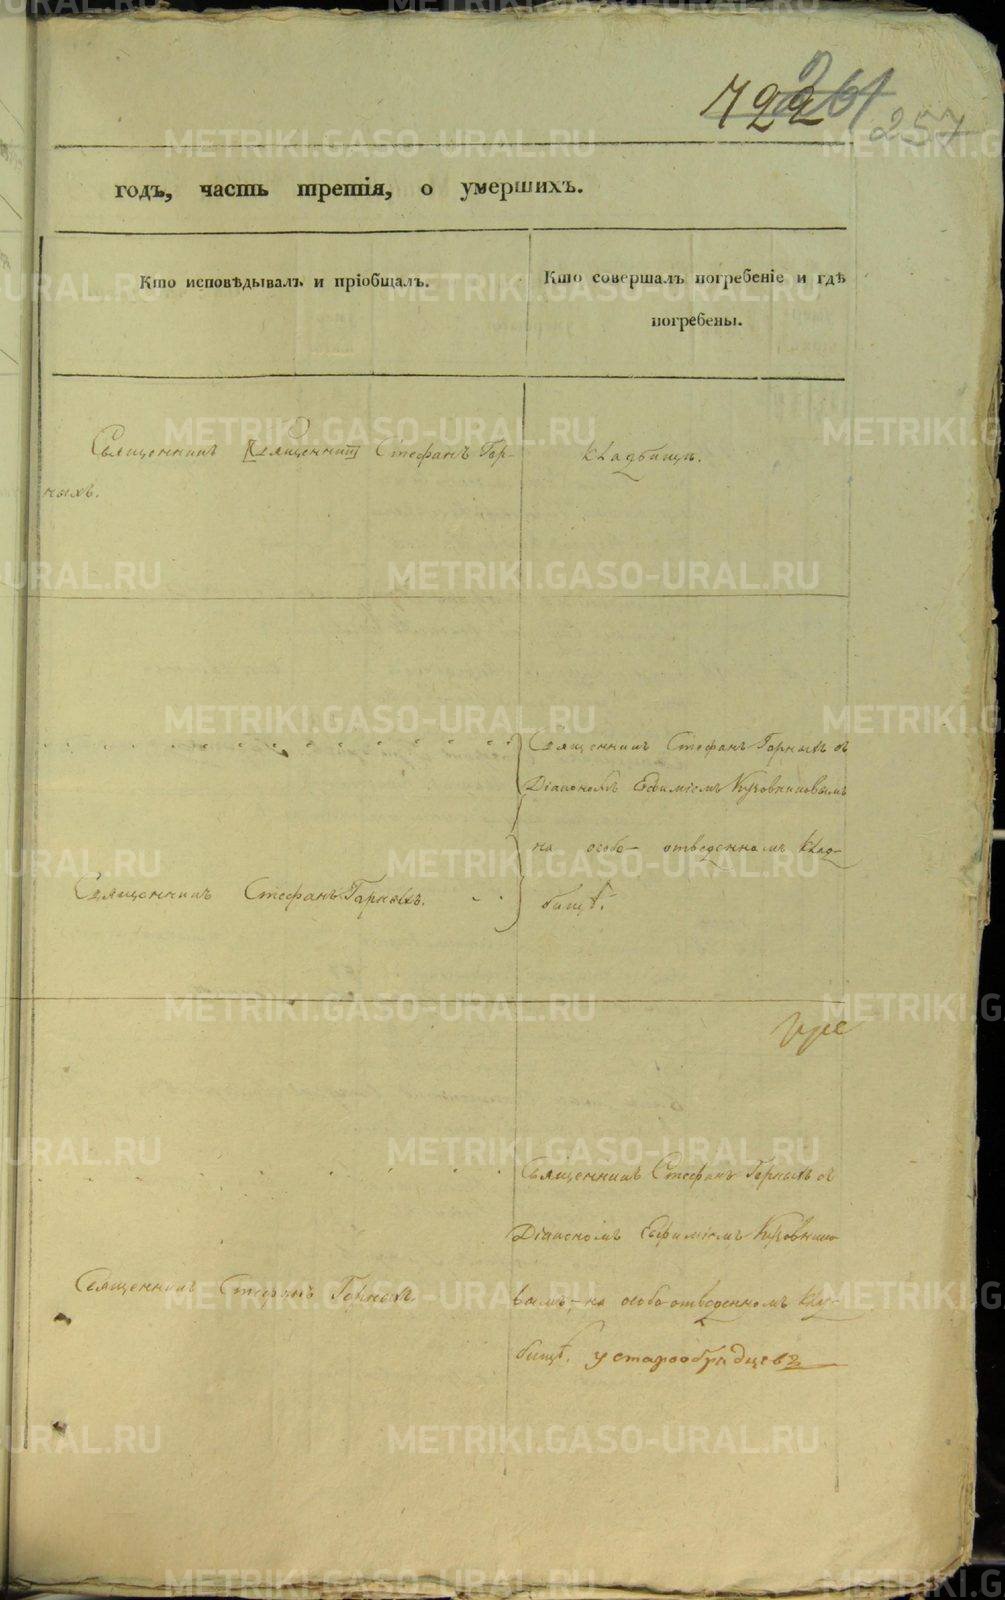 722 261
257
годъ, часть третія, о умершихъ.
Кто исповѣдывалъ и пріобщалъ.
Кто совершалъ погребеніе и гдѣ
погребены.
Священникъ [Священникъ] Стефанъ Гор-
ныхъ.
кладбищѣ.
Священникъ Стефанъ Горныхъ съ
Діакономъ Евфиміемъ
на особо отведенномъ клад-
бищѣ.
Священникъ Стефанъ Горныхъ.
Священникъ Стефанъ Горныхъ съ
Діакономъ Евфиміемъ
вымъ, на особо отведенномъ клад-
бищѣ. у старообрядцевъ
Священникъ Стефанъ Горныхъ.
METRIKI.GASO-URAL.RU